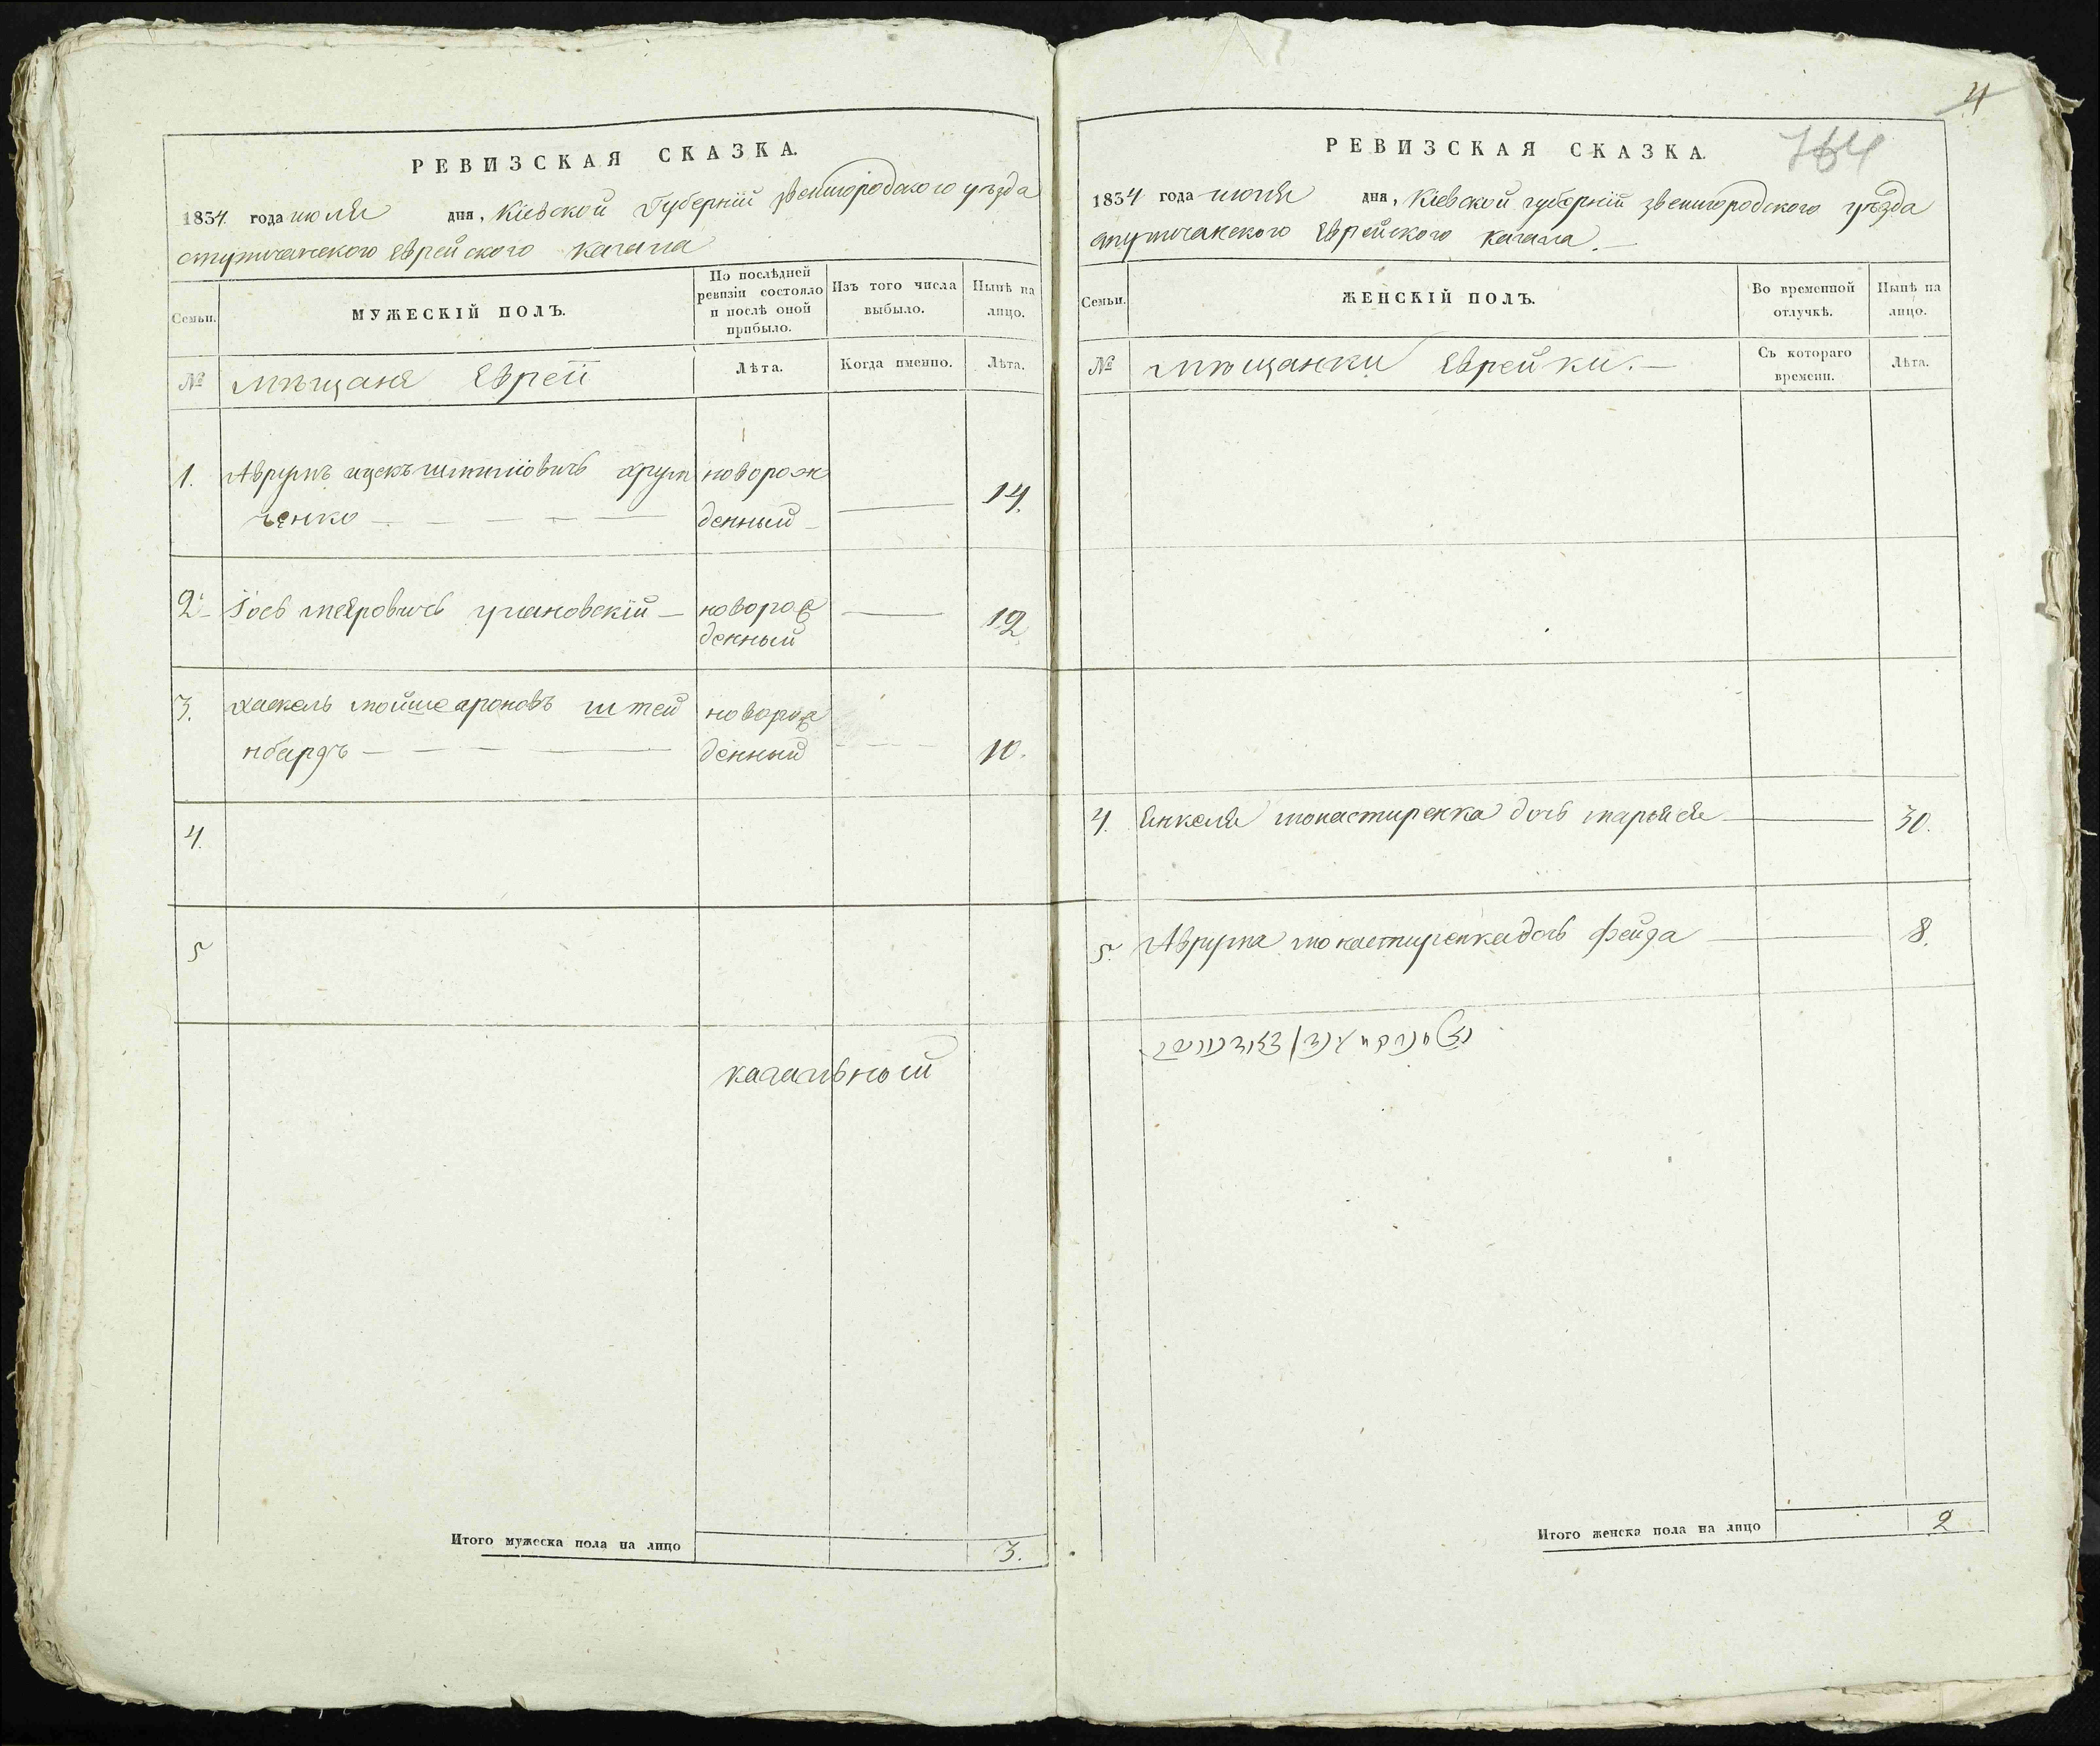 РЕВИЗСКАЯ СКАЗКА.
1834 года июля дня, Кіевской Губерніи звенигородского уѣзда
Еврейского кагала
Семьи.
МУЖЕСКІЙ ПОЛЪ.
По послѣдней
ревизіи состояло
и послѣ оной
прибыло.
Изъ того числа
выбыло.
Нынѣ на
лицо.
№
мѣщане Евреи
Лѣта.
Когда именно.
Лѣта.
1. Аврумъ ицекъ новорож
ченко денный 14.
2. Іось меяровичь новорож 12
денный
3. хаскель мойше ароновъ штей новорож
нбаргъ денный 10.
4.
5
кагальный
Итого мужеска пола на лицо 3.
4
764
РЕВИЗСКАЯ СКАЗКА.
1834 года июля дня, Кіевской губерніи звенигородского уѣзда
Еврейского кагала.
Семьи.
ЖЕНСКІЙ ПОЛЪ.
Во временной
отлучкѣ.
Нынѣ на
лицо.
№
мѣщанки Еврейки.
Съ котораго
времени.
Лѣта.
4. Янкеля монастиренка дочь марьяся 30.
5. Аврума монастиренка дочь фейга 8.
Итого женска пола на лицо 2